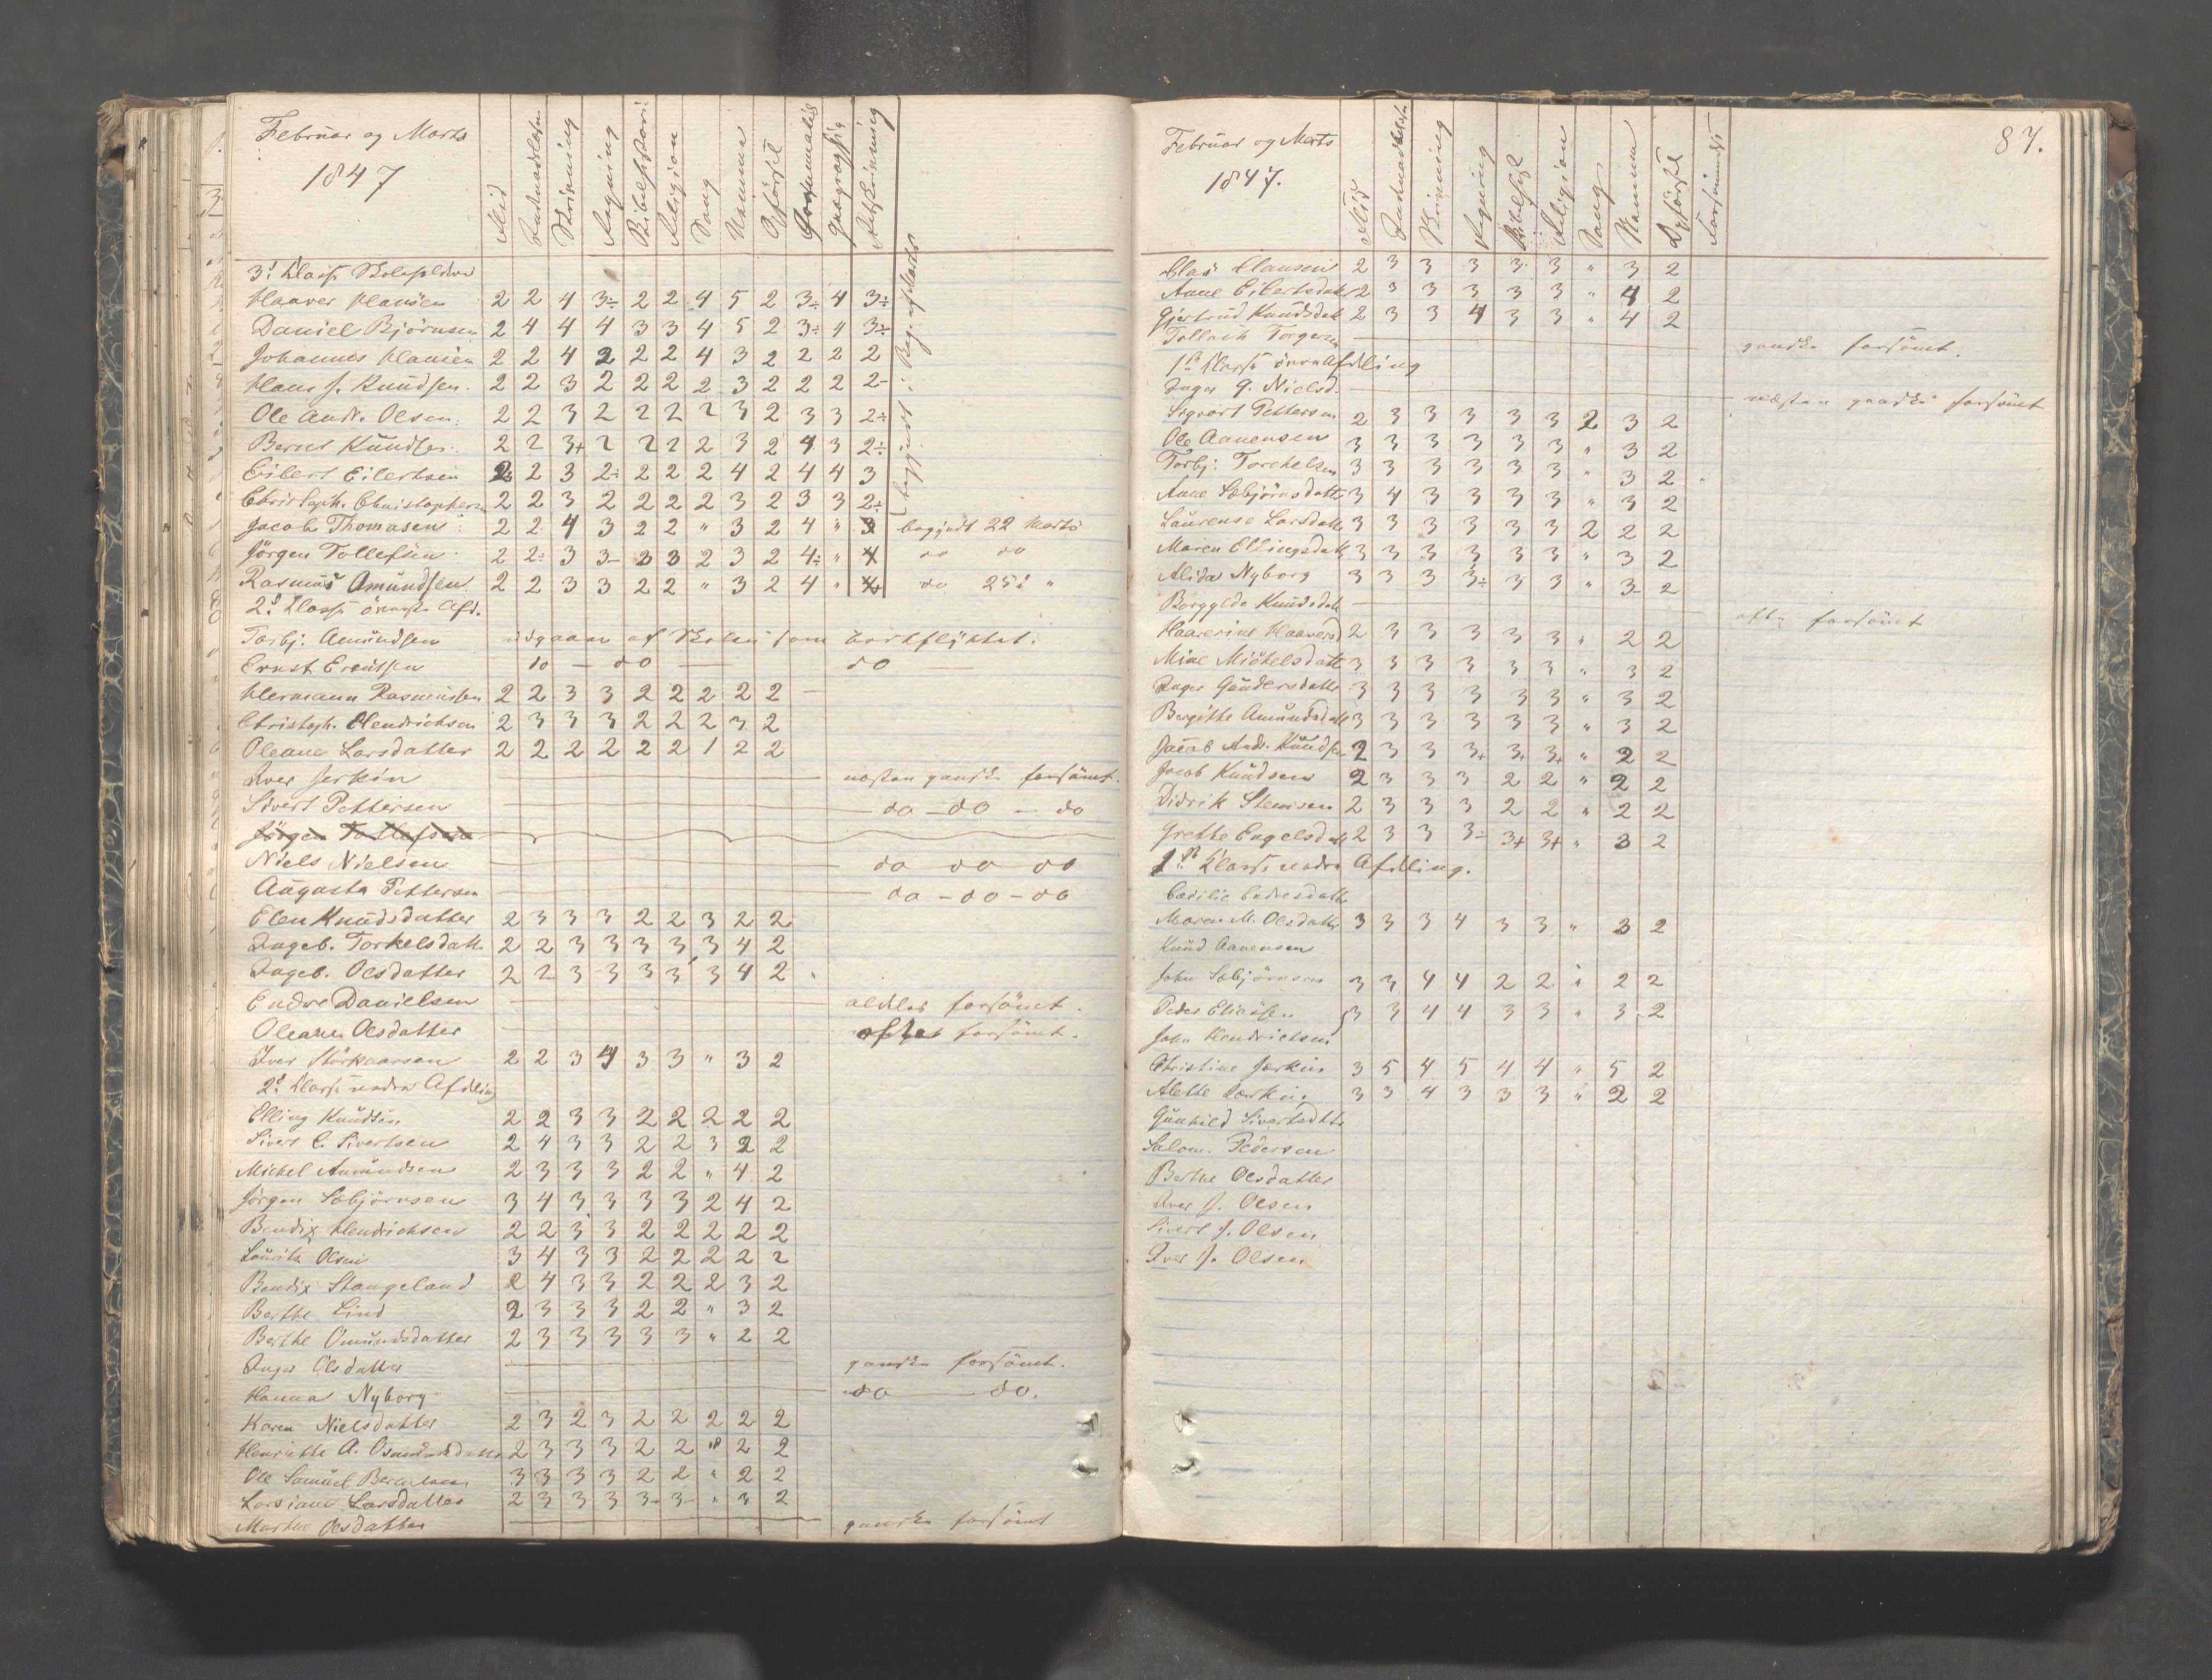 Februar og Marts
1847
Flid
Indenadslæsn
Skrivning
Regning
Bibelhistori
Religion
Sang
Nemme
Opførsel
Grammatik
Geographie
Retskrivning
3d Klasse
Haaver Hansen 2 2 4 3÷ 2 2 4 5 2 3÷ 4 3÷
Daniel Björnsen 2 4 4 4 3 3 4 5 2 3÷ 4 3÷
Johannes Hansen 2 2 4 2 2 2 4 3 2 2 2 2
Hans J. Knudsen. 2 2 3 2 2 2 2 3 2 2 2 2-
Ole Andr. Olsen. 2 2 3 2 2 2 2 3 2 3 3 2÷
Bernt Knudsen. 2 2 3+ 2 2 2 2 3 2 4 3 2÷
Eilert Eilertsen 2 2 3 2÷ 2 2 2 4 2 4 4 3
Christoph. Christophersen 2 2 3 2 2 2 2 3 2 3 3 2÷
begyndt i Beg. af Marts
Jacob Thomasen 2 2 4 3 2 2 " 3 2 4 " 3 begyndt 22 Marts
Jörgen Tollefsen 2 2÷ 3 3- 3 3 2 3 2 4÷ " 4 do do
Rasmus Amundsen 2 2 3 3 2 2 " 3 2 4 " 4 do 25 "
2d Klasse överste Afd.
Torbj: Amundsen udgaaer af Skolen som bortflyttet.
Ernst Erentsen do — do — do —
Hermann Rasmussen 2 2 3 3 2 2 2 2 2
Christoph. Hendrichsen 2 3 3 3 2 2 2 3 2
Oleane Larsdatter 2 2 2 2 2 2 1 2 2
Iver Jerkin næsten ganske forsömt.
Sivert Pettersen do — do — do
Jörgen Tollefsen
Niels Nielsen do do do
Augusta Pettersen do — do — do
Elen Knudsdatter 2 3 3 3 2 2 3 2 2
Ingeb. Torkelsdatt. 2 2 3 3 3 3 3 4 2
Ingeb. Olsdatter 2 2 3 3 3 3 3 4 2
Endre Danielsen aldeles forsömt.
Oleane Olsdatter ofte forsömt.
Iver Störkaarsen 2 2 3 4 3 3 " 3 2
2d Klasse nedre Afdeling
Elling Knudsen 2 2 3 3 2 2 2 2 2
Sivert C. Sivertsen 2 4 3 3 2 2 3 2 2
Michel Amundsen 2 3 3 3 2 2 " 4 2
Jörgen Sæbjörnsen 3 4 3 3 3 3 2 4 2
Bendix Hendrichsen 2 2 3 3 2 2 2 2 2
Lauritz Olsen 3 4 3 3 2 2 2 2 2
Bendix Stangeland 2 4 3 3 2 2 2 3 2
Berthe Lind 2 3 3 3 2 2 " 3 2
Berthe Omundsdatter 2 3 3 3 3 3 " 2 2
Inger Olsdatter ganske forsömt.
Hanna Nyborg do do.
Karen Nielsdatter 2 3 2 3 2 2 2 2 2
Henriette A. Osmundsdatter 2 3 3 3 2 2 " 2 2
Ole Samuel Berentsen 3 3 3 3 2 2 " 2 2
Larsiane Larsdatter 2 3 3 3 3- 3- " 3 2
Marthe Olsdatter ganske forsömt
87.
Februar og Marts
1847.
Flid
Indenadslæsn
Skrivning
Regning
Bibelhist
Religion
Sang
Nemme
Opførsel
Forsømmelse
Clas Clausen 2 3 3 3 3 3 " 3 2
Anne Eilertsdatt 2 3 3 3 3 3 " 4 2
Gjertrud Knudsdatt 2 3 3 4 3 3 " 4 2
Tollach Torgersen ganske forsömt.
1ste Klasse övre Afdeling
Inger G. Nielsd. næsten ganske forsömt
Sigvart Pettersen 2 3 3 3 3 3 2 3 2
Ole Aanensen 3 3 3 3 3 3 " 3 2
Torbj: Torchelsen 3 3 3 3 3 3 " 3 2
Anne Sæbjörnsdatter 3 4 3 3 3 3 " 3 2
Laurense Larsdatt 3 3 3 3 3 3 2 2 2
Maren Ellingsdatt 3 3 3 3 3 3 " 3 2
Alida Nyborg 3 3 3 3÷ 3 3 " 3- 2
Borgylde Knudsdatt ofte forsömt
Haaverine Haaversd 2 3 3 3 3 3 " 2 2
Mine Michelsdatt 3 3 3 3 3 3 " 3 2
Inger Gundersdatter 3 3 3 3 3 3 " 3 2
Bergitte Amundsdatt 3 3 3 3 3 3 " 3 2
Jacob Andr. Knudsen 2 3 3 3+ 3+ 3+ " 2 2
Jacob Knudsen 2 3 3 3 2 2 " 2 2
Didrik Stensen 2 3 3 3 2 2 " 2 2
Grethe Engelsdatt 2 3 3 3- 3+ 3+ " 3 2
1ste Klasse nedre Afdeling.
Cecilie Endresdatter
Maren M. Olsdatter 3 3 3 4 3 3 " 3 2
Knud Aanensen
John Sæbjörnsen 3 3 4 4 2 2 " 2 2
Peder Eliasen 3 3 4 4 3 3 " 3 2
John Hendrichsen
Christine Jærkin 3 5 4 5 4 4 " 5 2
Alethe Lærkin 3 3 4 3 3 3 " 2 2
Gunhild Sivertsdtt.
Salom. Pedersen
Berthe Olsdatter
Iver J. Olsen
Sivert J. Olsen
Iver J. Olsen